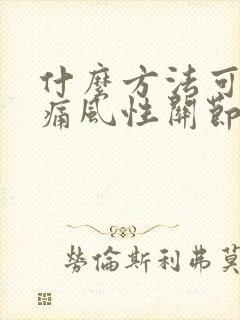 什麼方法可
痛風性關節
勞倫斯利弗莫